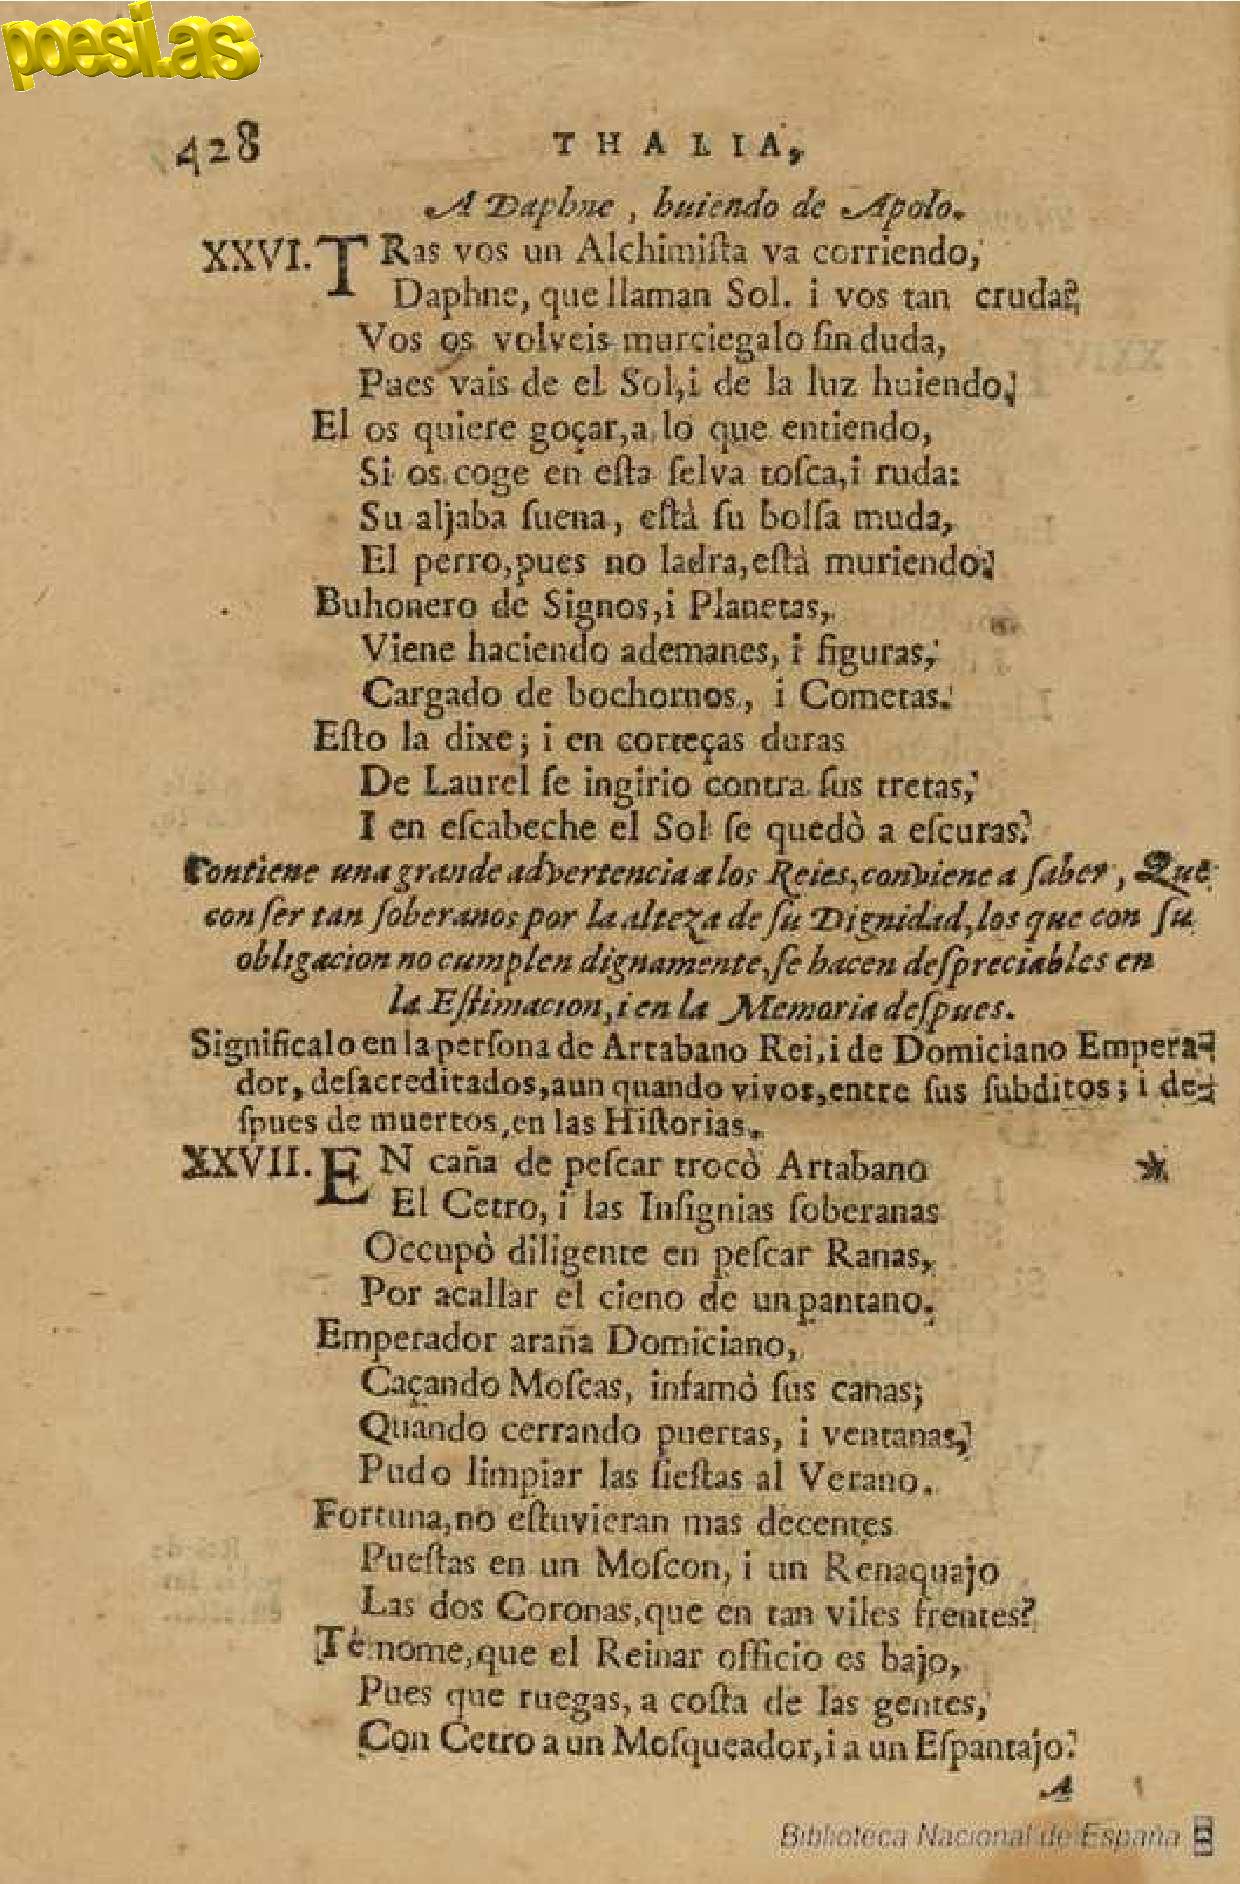 poesi.as
428 THALIA,
A Daphne, huiendo de Apolo.
XXVI. TRas vos un Alchimiſta va corriendo,
Daphne, que llaman Sol. i vos tan cruda?
Vos os volveis murciegalo ſin duda,
Pues vais de el Sol, i de la luz huiendo.
El os quiere goçar, a lo que entiendo,
Si os coge en eſta ſelva toſca, i ruda:
Su aljaba ſuena, eſtà ſu bolſa muda,
El perro, pues no ladra, eſtà muriendo.
Buhonero de Signos, i Planetas,
Viene haciendo ademanes, i figuras,
Cargado de bochornos, i Cometas.
Eſto la dixe; i en corteças duras
De Laurel ſe ingirio contra ſus tretas,
I en eſcabeche el Sol ſe quedò a eſcuras.
Contiene una grande advertencia a los Reies, conviene a ſaber, Que
con ſer tan ſoberanos por la alteza de ſu Dignidad, los que con ſu
obligacion no cumplen dignamente, ſe hacen deſpreciables en
la Eſtimacion, i en la Memoria deſpues.
Significalo en la perſona de Artabano Rei, i de Domiciano Empera-
dor, deſacreditados, aun quando vivos, entre ſus ſubditos; i de-
ſpues de muertos, en las Hiſtorias.
XXVII. EN caña de peſcar trocò Artabano *
El Cetro, i las Inſignias ſoberanas
Occupò diligente en peſcar Ranas,
Por acallar el cieno de un pantano.
Emperador araña Domiciano,
Caçando Moſcas, infamò ſus canas;
Quando cerrando puertas, i ventanas,
Pudo limpiar las ſieſtas al Verano.
Fortuna, no eſtuvieran mas decentes
Pueſtas en un Moſcon, i un Renaquajo
Las dos Coronas, que en tan viles frentes?
Tènome, que el Reinar officio es bajo,
Pues que ruegas, a coſta de las gentes,
Con Cetro a un Moſqueador, i a un Eſpantajo.
A
Biblioteca Nacional de España